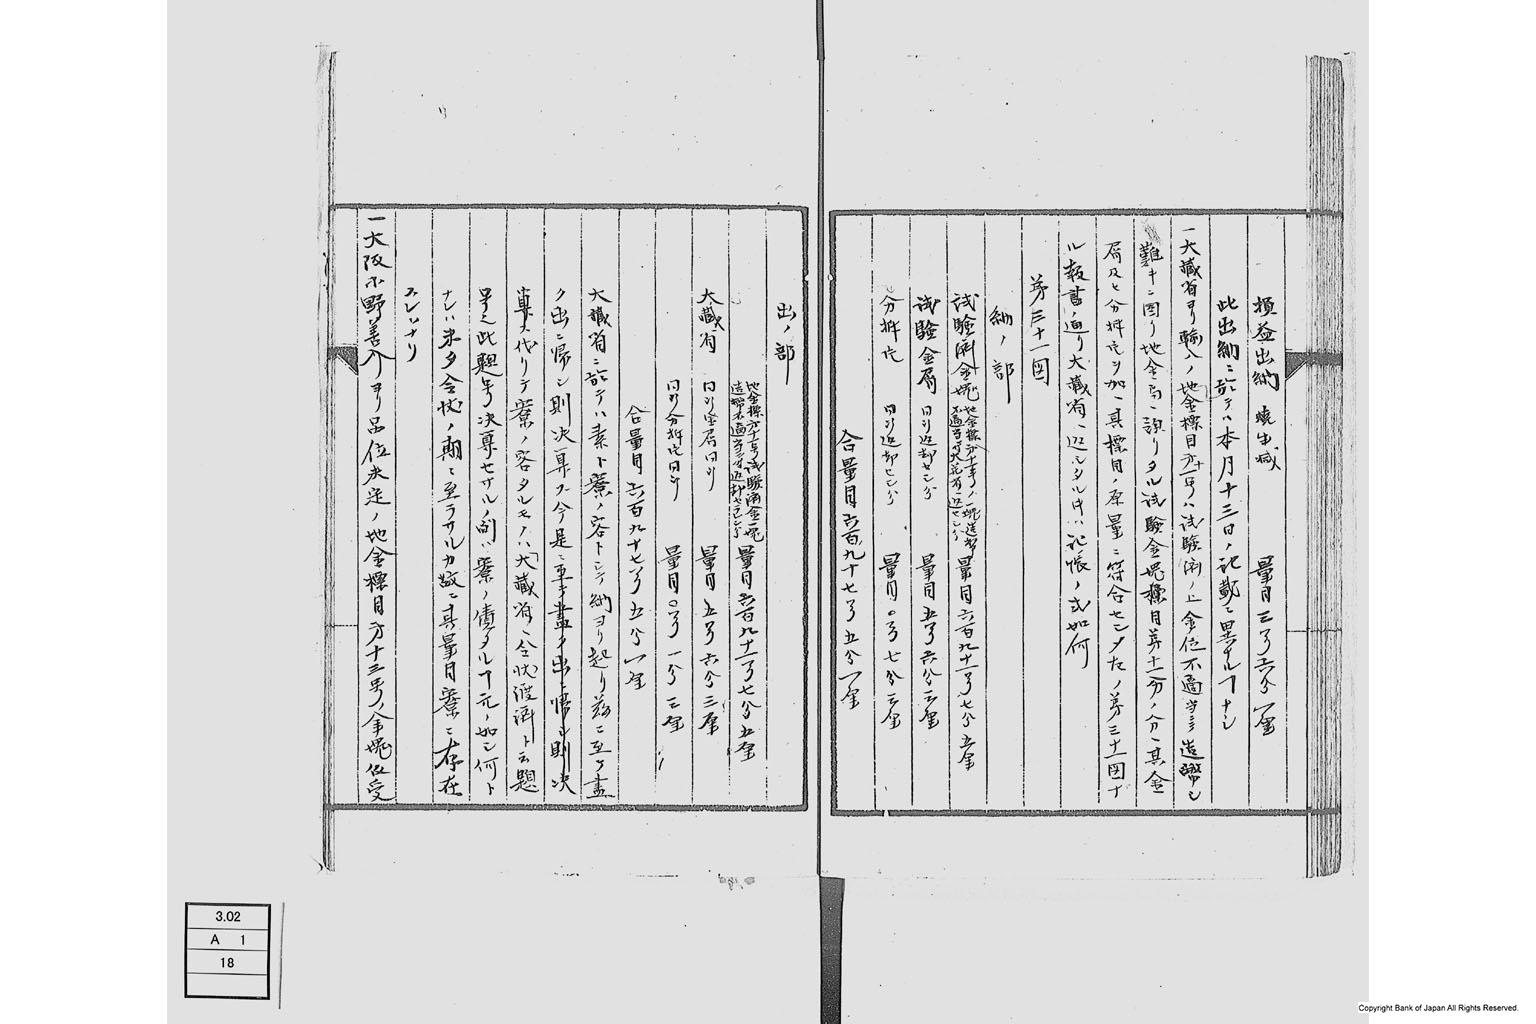 損益出納 焼出減 量目三弓六分一厘
此出納ニ就テハ本月十三日ノ記載ニ異ナルヿナシ
一大蔵省ヨリ輸入ノ地金標目第十一号ハ試験済ノ上金位不適当ニシテ造幣シ
難キニ因リ地金局ニ譲リタル試験金塊標目第十一号ノ分ヘ其金
屑及ヒ分析
ヲ加ヘ其標目ノ原量ニ符合セシメタルノ第三十一図ナ
ル報書ノ通リ大蔵省ヘ返シタル時ハ記帳ノ式如何
第三十一図
納ノ部
試験済金塊 量目六百九十一弓七分五厘
試験金屑 同所返却セシ分 量目五弓六分三厘
分析 同所返却セシ分 量目〇弓七分三厘
合量目六百九十七弓五分一厘
出ノ部
地金標第十一号試験済金一塊
造幣不適当ニ付返却セラレシ分
量目六百九十一弓七分五厘
大蔵省 同所金屑同所 量目五弓六分三厘
同所分析 同所 量目〇弓一分三厘
合量目六百九十七弓五分一厘
大蔵省ニ就テハ素ト寮ノ客トシテ納ヨリ起リ茲ニ至テ盡
ク出ニ帰シ則決算ス今是ニ至テ盡ク出ニ帰シ則決
算ス代リテ寮ノ客タルモノハ大蔵省ヘ金状渡済ト云題
号ニ此題号決算セサルノ間ハ寮ノ債タルヿ元ノ如シ何ト
ナレハ未タ金状ノ期ニ至ラサルカ故ニ其量目寮ニ存在
スレハナリ
一大阪小野善介ヨリ品位未定ノ地金標目第十三号ノ金塊
受
3.02
A 1
18
Copyright Bank of Japan All Rights Reserved.